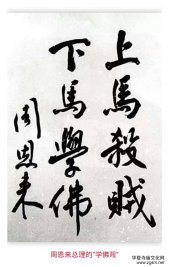 上馬殺賊
下馬學佛
周恩来
周恩来总理的“学佛观”
华夏传播文化网
www.zgsm.net